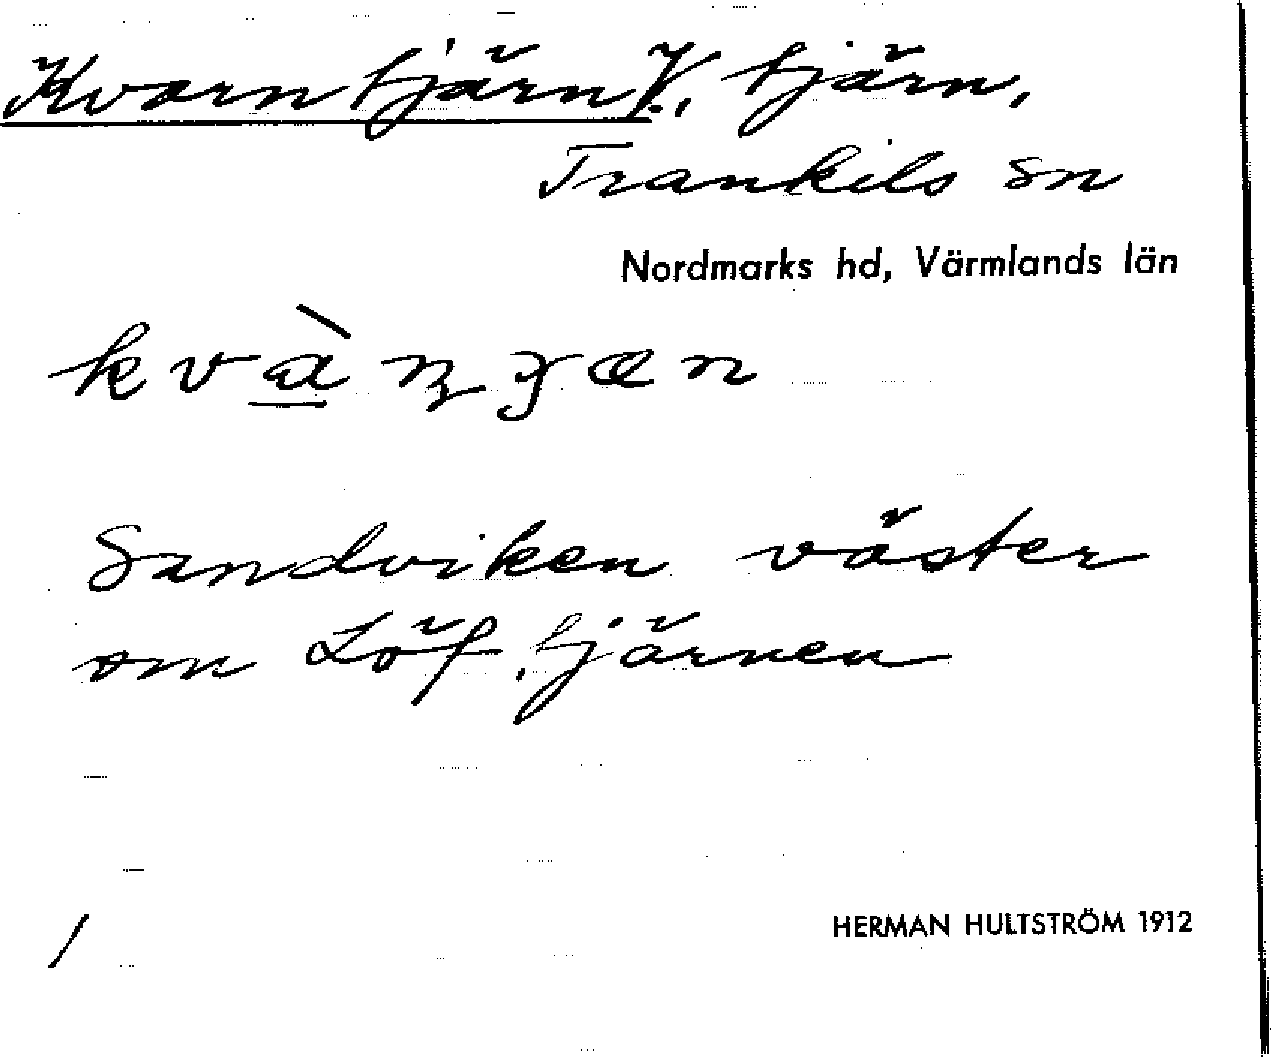 Kvarntjärn V., tjärn,
Trankils sn
Nordmarks hd, Värmlands län
Sandviken väster
om Löf. tjärnen
/
HERMAN HULTSTRÖM 1912